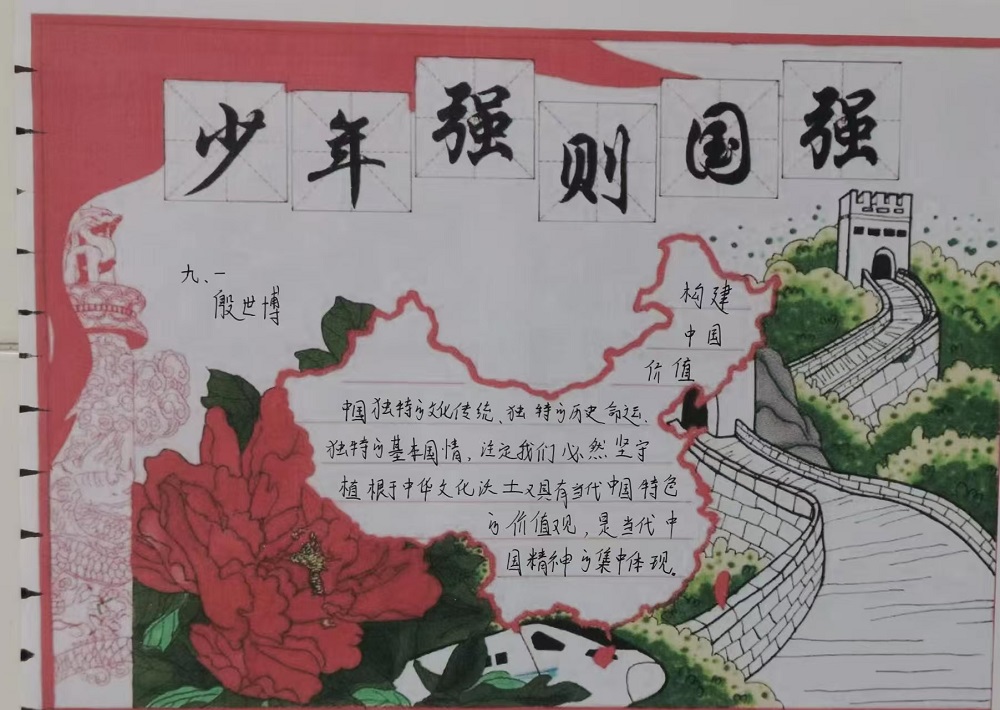 少年强则国强
九、一
殷世博
构建
中国
价值
中国独特的文化传统、独特的历史命运、
独特的基本国情，注定我们必然坚守
植根于中华文化沃土又具有当代中国特色
的价值观，是当代中
国精神的集中体现。